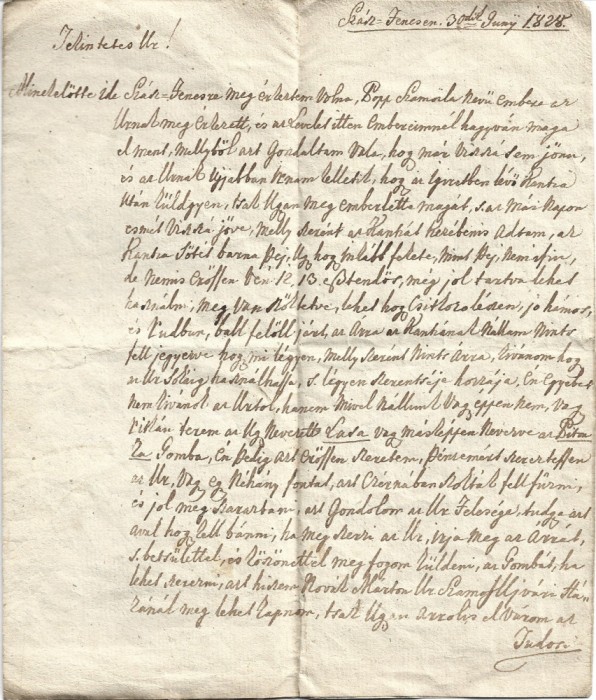 Szász=Fenesen. 30dik Junÿ 1828.
Tekintetes Ur!
Minekelötte ide Szász=Fenesre meg érkeztem volna, Popp Szamoila Nevü Embere az
Urnak meg érkezett, és az Levelet itten Emberemnél hagyván maga
el ment, mellyböl azt Gondoltam Vala, hogy már Viszsá sem jöne,
és az Urnak Ujjabban Irnom kelletik, hogy az lévö Kantza
Után küldgyen, tsak Ugyan meg Emberlette magát, s az Más Napon
esmét Viszsá jöve, melly szerént az Kantzát kezébenis Adtam, az
Kantza Sötét barna Pej, Ugy hogy inkább fekete, mint Pej, Nem ifiu,
de Nemis erössen Vén 12, 13 esztendös, még jol tartva lehet
használni, meg van lehet hogy jo hámos,
és Rudban, ball felöll járt, az Arra az Kantzának Nállam Nints
fell jegyezve hogy mi légyen, melly szerént Nints Árra, Kivánom hogy
az Ur Sokáig használhassa, s légyen szerentséje hozzája, Én Egyebet
Nem Kivánok az Urtol, hanem Mivel Nállunk Vagy eppen Nem, Vagy
Ritkán terem az Ug Nevezett Lasa Vagy másképpen Nevezve az Piton
ka Gomba, Én Pedig azt Erössen szeretem, Pénzemért szereztessen
az Ur, Vagy egy Néhány fontal, azt Czérnában szokták fell füzni,
és jol meg szárazbani, azt Gondolom az Ur Felesége, tudja azt
aval hogy kell bánni, ha meg szerzi az Ur, irja meg az Árrát,
s betsülettel, és köszönettel meg fogom küldeni, az Gombát, ha
lehet szerezni, azt hiszem Novák Márton Ur Szamos Ujvári Há-
zánál meg lehet kapnom, tsak Ugyan arrolis el Várom az
Tudosi